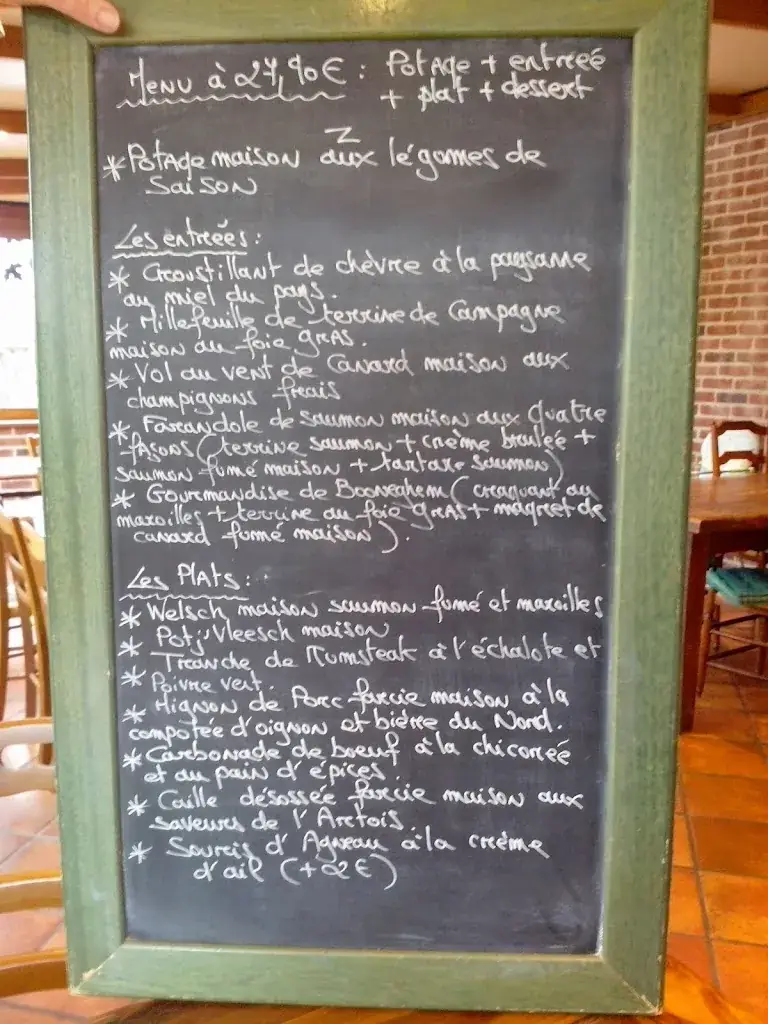 Menu à 27,90€ : Potage + entrée
+ plat + dessert
* Potage maison aux légumes de
saison
Les entrées :
* Croustillant de chèvre à la paysanne
au miel du pays.
* Millefeuille de terrine de Campagne
maison au foie gras.
* Vol au vent de Canard maison aux
champignons frais
* Farandole de saumon maison aux Quatre
fasons (terrine saumon + crème brulée +
saumon fumé maison + tartare saumon)
* Gourmandise de Booneghem (craquant au
maroilles + terrine au foie gras + magret de
canard fumé maison).
Les Plats :
* Welsch maison saumon fumé et maroilles
* Potj'Vleesch maison
* Tranche de Rumsteak à l'échalote et
* Poivre vert.
* Mignon de Porc farcie maison à la
compotée d'oignon et bière du Nord.
* Carbonade de boeuf à la chicorée
et au pain d'épices.
* Caille désossée farcie maison aux
saveurs de l'Artois.
* Souris d'Agneau à la crème
d'ail (+2€)